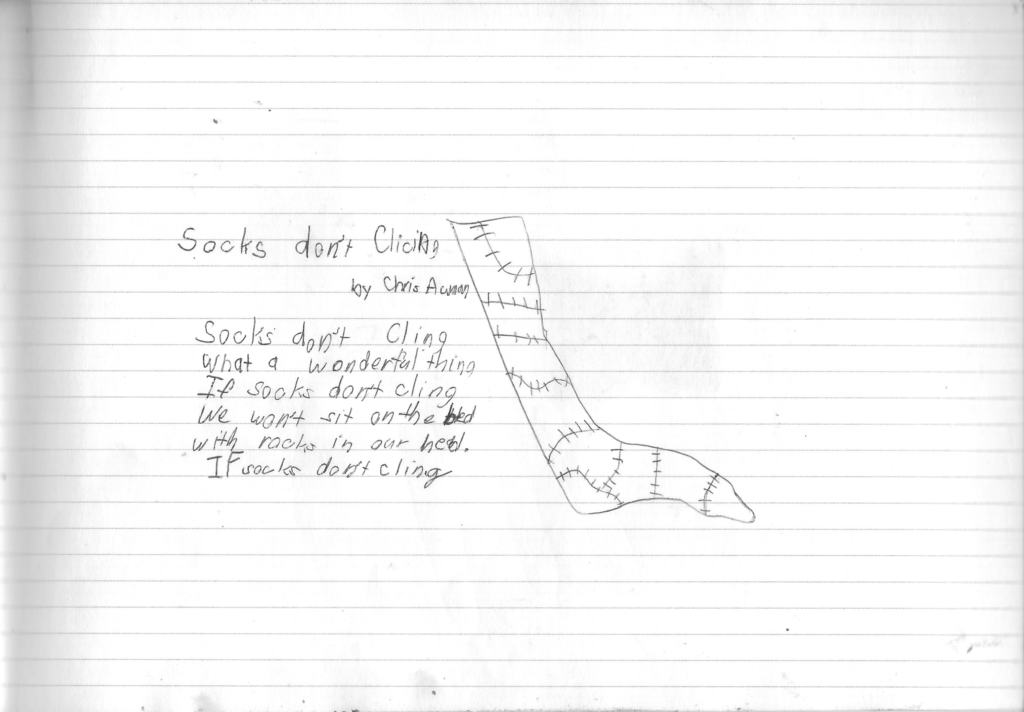 Socks don't
by Chris
Socks don't Cling
What a wonderful thing
If socks don't cling
We won't sit on the bed
with rocks in our
If socks don't cling